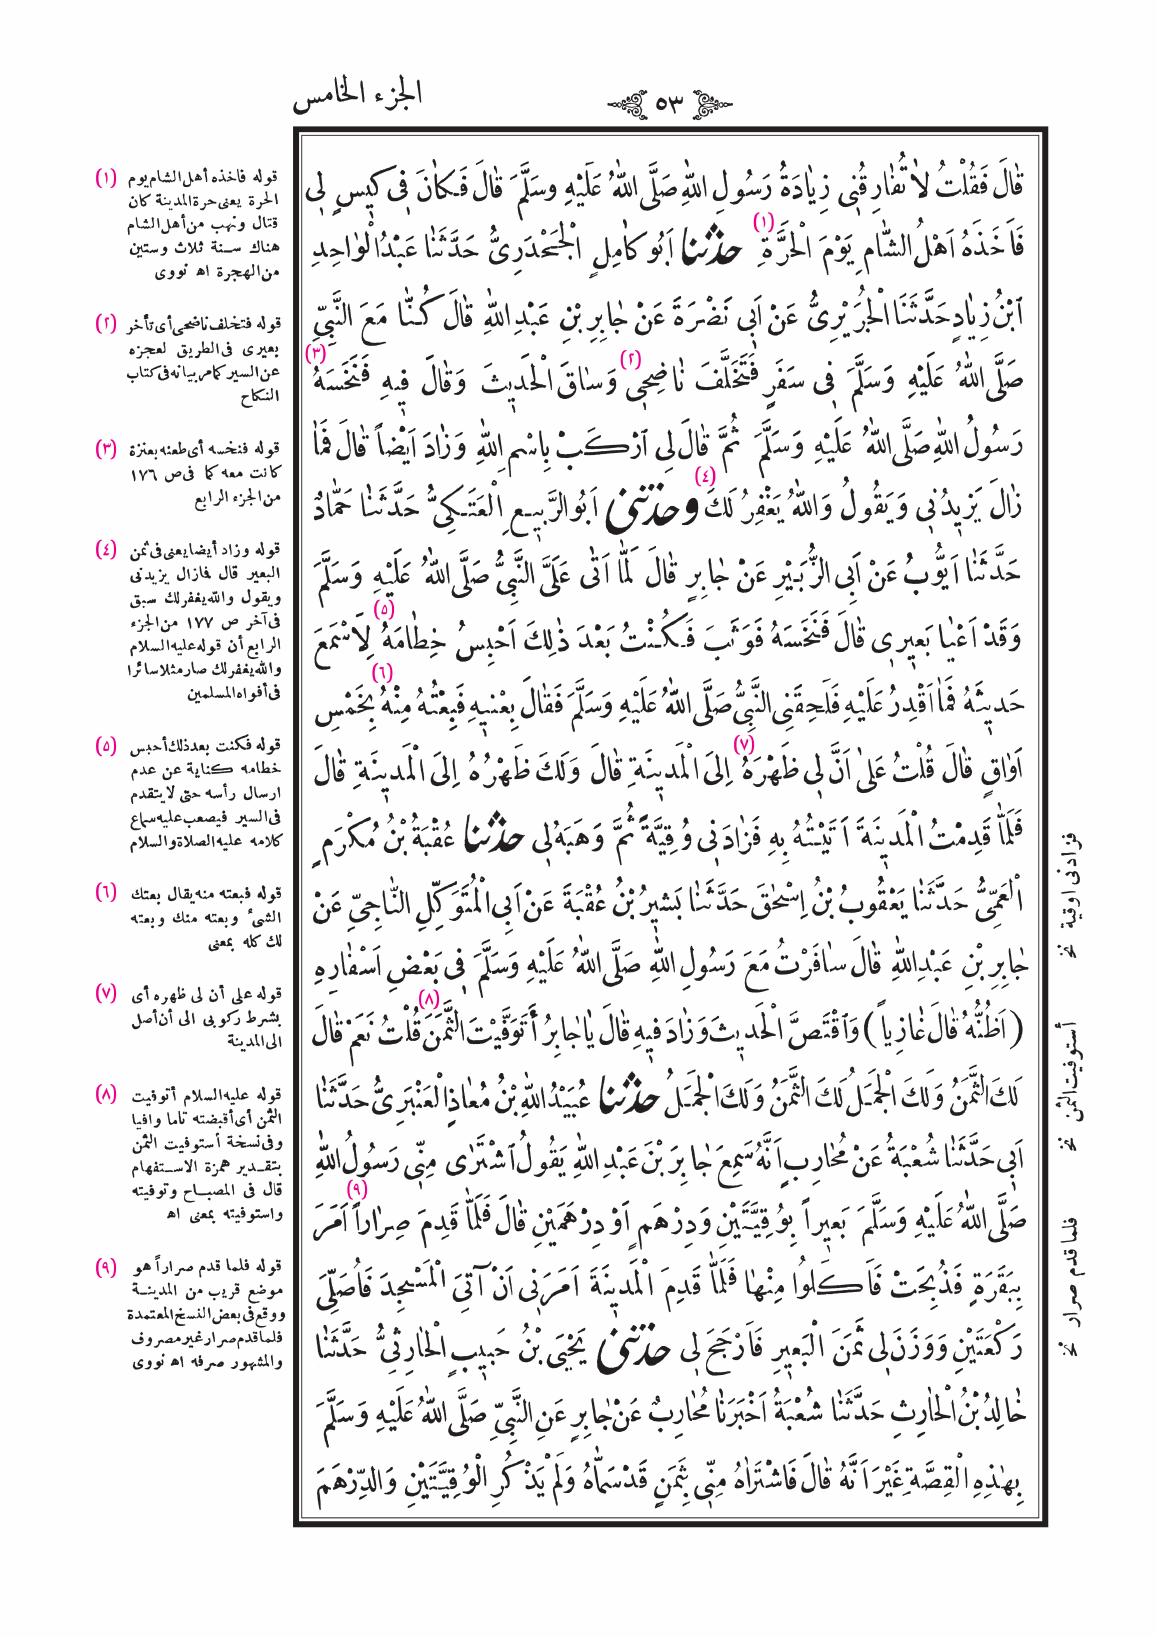 الجزء الخامس
٥٣
قَالَ فَقُلْتُ لَا تُفَارِقُنِي زِيَادَةُ رَسُولِ اللهِ صَلَّى اللهُ عَلَيْهِ وَسَلَّمَ قَالَ فَكَانَ فِي كِيسٍ لِي
فَأَخَذَهُ اَهْلُ الشَّامِ يَوْمَ الْحَرَّةِ (١) حدثنا اَبُو كَامِلٍ الْجَحْدَرِىُّ حَدَّثَنَا عَبْدُ الْوَاحِدِ
ابْنُ زِيَادٍ حَدَّثَنَا الْجُرَيْرِىُّ عَنْ اَبِى نَضْرَةَ عَنْ جَابِرِ بْنِ عَبْدِ اللهِ قَالَ كُنَّا مَعَ النَّبِيِّ
صَلَّى اللهُ عَلَيْهِ وَسَلَّمَ فِى سَفَرٍ فَتَخَلَّفَ نَاضِحِى (٢) وَسَاقَ الْحَدِيثَ وَقَالَ فِيهِ فَنَخَسَهُ (٣)
رَسُولُ اللهِ صَلَّى اللهُ عَلَيْهِ وَسَلَّمَ ثُمَّ قَالَ لِى ارْكَبْ بِاسْمِ اللهِ وَزَادَ اَيْضاً قَالَ فَمَا
زَالَ يَزِيدُنِى وَيَقُولُ وَاللهُ يَغْفِرُ لَكَ (٤) وحدثنى اَبُو الرَّبِيعِ الْعَتَكِىُّ حَدَّثَنَا حَمَّادٌ
حَدَّثَنَا اَيُّوبُ عَنْ اَبِى الزُّبَيْرِ عَنْ جَابِرٍ قَالَ لَمَّا اَتَى عَلَىَّ النَّبِىُّ صَلَّى اللهُ عَلَيْهِ وَسَلَّمَ
وَقَدْ اَعْيَا بَعِيرِى قَالَ فَنَخَسَهُ فَوَثَبَ فَكُنْتُ بَعْدَ ذٰلِكَ اَحْبِسُ خِطَامَهُ (٥) لِاَسْمَعَ
حَدِيثَهُ فَمَا اَقْدِرُ عَلَيْهِ فَلَحِقَنِى النَّبِىُّ صَلَّى اللهُ عَلَيْهِ وَسَلَّمَ فَقَالَ بِعْنِيهِ فَبِعْتُهُ مِنْهُ (٦) بِخَمْسِ
اَوَاقٍ قَالَ قُلْتُ عَلَى اَنَّ لِى ظَهْرَهُ (٧) اِلَى الْمَدِينَةِ قَالَ وَلَكَ ظَهْرُهُ اِلَى الْمَدِينَةِ قَالَ
فَلَمَّا قَدِمْتُ الْمَدِينَةَ اَتَيْتُهُ بِهِ فَزَادَنِى وُقِيَّةً ثُمَّ وَهَبَهُ لِى حدثنا عُقْبَةُ بْنُ مُكْرَمٍ
الْعَمِّىُّ حَدَّثَنَا يَعْقُوبُ بْنُ اِسْحٰقَ حَدَّثَنَا بَشِيرُ بْنُ عُقْبَةَ عَنْ اَبِى الْمُتَوَكِّلِ النَّاجِىِّ عَنْ
جَابِرِ بْنِ عَبْدِ اللهِ قَالَ سَافَرْتُ مَعَ رَسُولِ اللهِ صَلَّى اللهُ عَلَيْهِ وَسَلَّمَ فِى بَعْضِ اَسْفَارِهِ
(اَظُنُّهُ قَالَ غَازِياً) وَاقْتَصَّ الْحَدِيثَ وَزَادَ فِيهِ قَالَ يَا جَابِرُ أَتَوَفَّيْتَ الثَّمَنَ (٨) قُلْتُ نَعَمْ قَالَ
لَكَ الثَّمَنُ وَلَكَ الْجَمَلُ لَكَ الثَّمَنُ وَلَكَ الْجَمَلُ حدثنا عُبَيْدُ اللهِ بْنُ مُعَاذٍ الْعَنْبَرِىُّ حَدَّثَنَا
اَبِى حَدَّثَنَا شُعْبَةُ عَنْ مُحَارِبٍ اَنَّهُ سَمِعَ جَابِرَ بْنَ عَبْدِ اللهِ يَقُولُ اشْتَرَى مِنِّى رَسُولُ اللهِ
صَلَّى اللهُ عَلَيْهِ وَسَلَّمَ بَعِيراً بِوُقِيَّتَيْنِ وَدِرْهَمٍ اَوْ دِرْهَمَيْنِ قَالَ فَلَمَّا قَدِمَ صِرَاراً (٩) اَمَرَ
بِبَقَرَةٍ فَذُبِحَتْ فَاَكَلُوا مِنْهَا فَلَمَّا قَدِمَ الْمَدِينَةَ اَمَرَنِى اَنْ آتِىَ الْمَسْجِدَ فَاُصَلِّىَ
رَكْعَتَيْنِ وَوَزَنَ لِى ثَمَنَ الْبَعِيرِ فَاَرْجَحَ لِى حدثنى يَحْيَى بْنُ حَبِيبٍ الْحَارِثِىُّ حَدَّثَنَا
خَالِدُ بْنُ الْحَارِثِ حَدَّثَنَا شُعْبَةُ اَخْبَرَنَا مُحَارِبٌ عَنْ جَابِرٍ عَنِ النَّبِىِّ صَلَّى اللهُ عَلَيْهِ وَسَلَّمَ
بِهٰذِهِ الْقِصَّةِ غَيْرَ اَنَّهُ قَالَ فَاشْتَرَاهُ مِنِّى بِثَمَنٍ قَدْ سَمَّاهُ وَلَمْ يَذْكُرِ الْوُقِيَّتَيْنِ وَالدِّرْهَمَ
(١) قوله فاخذه أهل الشام يوم
الحرة يعنى حرة المدينة كان
قتال ونهب من أهل الشام
هناك سنة ثلاث وستين
من الهجرة اه نووى
(٢) قوله فتخلف ناضحى أى تأخر
بعيرى فى الطريق لعجزه
عن السير كما مر بيانه فى كتاب
النكاح
(٣) قوله فنخسه أى طعنه بعنزة
كانت معه كما فى ص ١٧٦
من الجزء الرابع
(٤) قوله وزاد أيضا يعنى فى ثمن
البعير قال فمازال يزيدنى
ويقول والله يغفر لك سبق
فى آخر ص ١٧٧ من الجزء
الرابع أن قوله عليه السلام
والله يغفر لك صار مثلا سائرا
فى أفواه المسلمين
(٥) قوله فكنت بعد ذلك أحبس
خطامه كناية عن عدم
ارسال رأسه حتى لا يتقدم
فى السير فيصعب عليه سماع
كلامه عليه الصلاة والسلام
(٦) قوله فبعته منه يقال بعتك
الشئ وبعته منك وبعته
لك كله بمعنى
(٧) قوله على أن لى ظهره أى
بشرط ركوبى الى أن أصل
الى المدينة
(٨) قوله عليه السلام أتوفيت
الثمن أى أقبضته تاما وافيا
وفى نسخة أستوفيت الثمن
بتقدير همزة الاستفهام
قال فى المصباح وتوفيته
واستوفيته بمعنى اه
(٩) قوله فلما قدم صراراً هو
موضع قريب من المدينة
ووقع فى بعض النسخ المعتمدة
فلما قدم صرار غير مصروف
والمشهور صرفه اه نووى
فزادنى اوقية نخ
أستوفيت الثمن نخ
فلما قدم صرار نخ